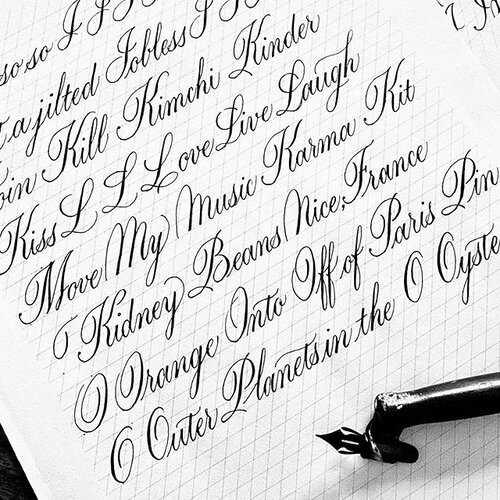 so so I I J J
a jilted Jobless J
Kill Kimchi Kinder
Kiss L L Love Live Laugh
Move My Music Karma Kit
Kidney Beans Nice, France
O Orange Onto Off of Paris Pin
O Outer Planets in the O Oyste